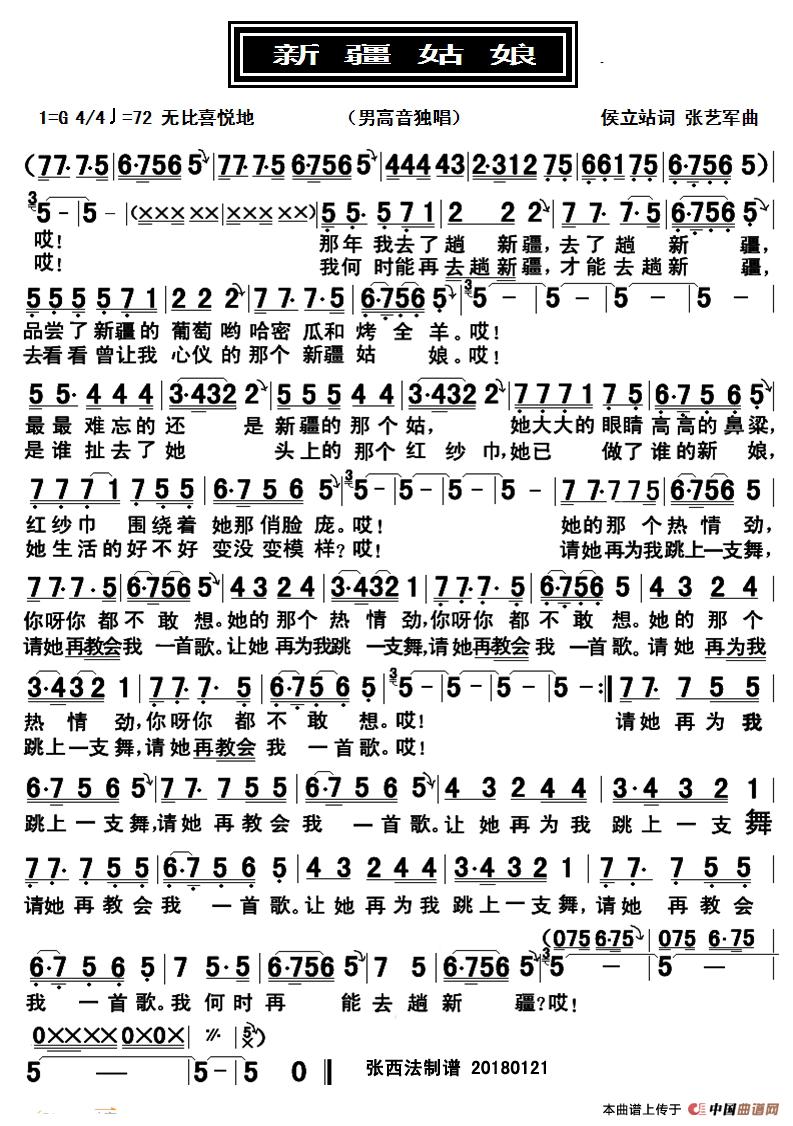 新疆姑娘
1=G 4/4♩=72 无比喜悦地 （男高音独唱） 侯立站词 张艺军曲
(77·75|6·7565|77·75|6·7565|44443|2·31275|66175|6·7565)|
35-|5-|(×××××|×××××)|55·571|2 22|77·7·5|6·7565|
哎！ 那年我去了趟 新疆，去了趟 新 疆，
哎！ 我何时能再去趟新疆，才能去趟新 疆，
555·571|2 2 2|77·7·5|6·7565|35-|5-|5-|
品尝了新疆的葡萄哟哈密瓜和烤全羊。哎！
去看看曾让我心仪的那个新疆姑 娘。哎！
55·444|3·4322|55544|3·4322|77771|6·7565|
最最难忘的还 是新疆的那个姑， 她大大的眼睛高高的鼻梁，
是谁扯去了她 头上的那个红纱巾，她已 做了谁的新 娘，
7771755|6·7565|35-|5-|5-|77·775|6·7565|
红纱巾 围绕着她那俏脸庞。哎！ 她的那个热情劲，
她生活的好不好变没变模样？哎！ 请她再为我跳上一支舞，
77·7·5|6·7565|4 3 2 4|3·4321|77·7·5|6·7565|4 3 2 4|
你呀你都不敢想。她的那个热情劲，你呀你都不敢想。她的那个
请她再教会我一首歌。让她再为我跳一支舞，请她再教会我一首歌。请她再为我
3·4321|77·7·5|6·7565|35-|5-|5-:‖77·755|
热情劲，你呀你都不敢想。哎！ 请她再为我
跳上一支舞，请她再教会我一首歌。哎！
6·7565|77·755|6·7565|43244|3·4321|
跳上一支舞，请她再教会我一首歌。让她再为我跳上一支舞
77·755|6·7565|43244|3·4321|77·755|
请她再教会我一首歌。让她再为我跳上一支舞，请她再教会
(075 6·75|075 6·75
6·7565|75·5|6·7565|75|6·7565|35-|5-
我一首歌。我何时再 能去趟新 疆？哎！
0××××|0×0×|〃|5×)
5-|5-|5 0‖
张西法制谱 20180121
本曲谱上传于 中国曲谱网